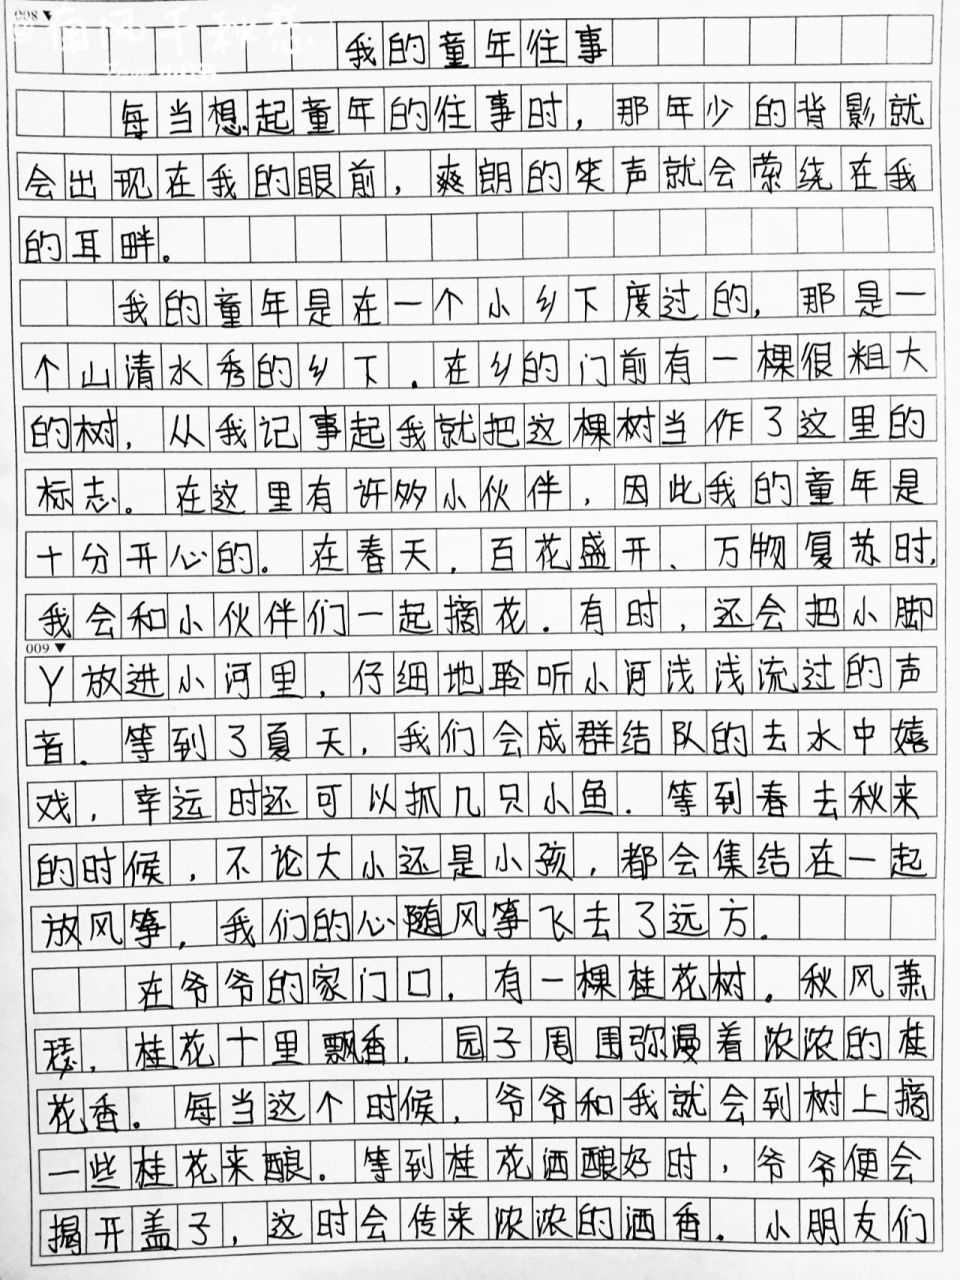 008▼
我的童年往事
每当想起童年的往事时，那年少的背影就
会出现在我的眼前，爽朗的笑声就会萦绕在我
的耳畔。
我的童年是在一个小乡下度过的，那是一
个山清水秀的乡下。在乡的门前有一棵很粗大
的树，从我记事起我就把这棵树当作了这里的
标志。在这里有许多小伙伴，因此我的童年是
十分开心的。在春天，百花盛开、万物复苏时，
我会和小伙伴们一起摘花。有时，还会把小脚
009▼
丫放进小河里，仔细地聆听小河浅浅流过的声
音。等到了夏天，我们会成群结队的去水中嬉
戏，幸运时还可以抓几只小鱼。等到春去秋来
的时候，不论大小还是小孩，都会集结在一起
放风筝，我们的心随风筝飞去了远方。
在爷爷的家门口，有一棵桂花树。秋风萧
瑟，桂花十里飘香，园子周围弥漫着浓浓的桂
花香。每当这个时候，爷爷和我就会到树上摘
一些桂花来酿。等到桂花酒酿好时，爷爷便会
揭开盖子，这时会传来浓浓的酒香。小朋友们